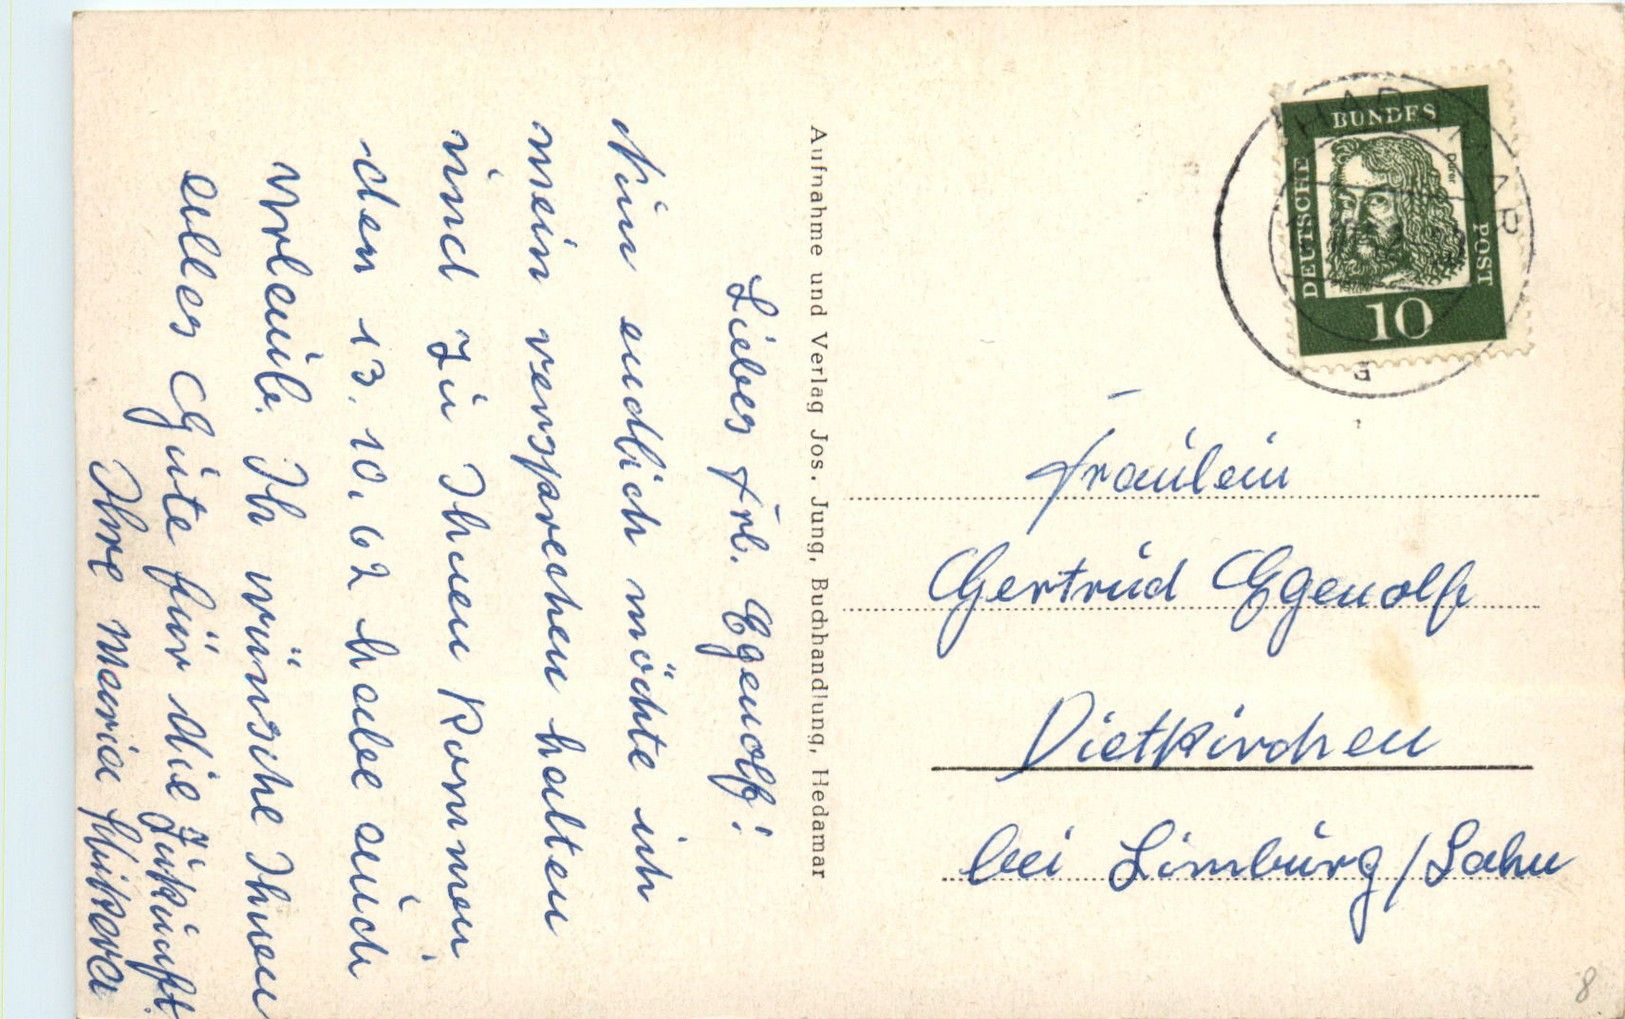 Liebes Frl. Egenolf!
Nun endlich möchte ich
mein versprechen halten
und zu Ihnen kommen
den 13. 10. 62 habe auch
Urlaub. Ih wünsche Ihnen
alles Gute für die Zukunft.
Ihre Maria
Aufnahme und Verlag Jos. Jung, Buchhandlung, Hedamar
HADAMAR
a
DEUTSCHE
BUNDES
POST
Dürer
10
Fräulein
Gertrud Egenolf
Dietkirchen
bei Limburg/Lahn
8